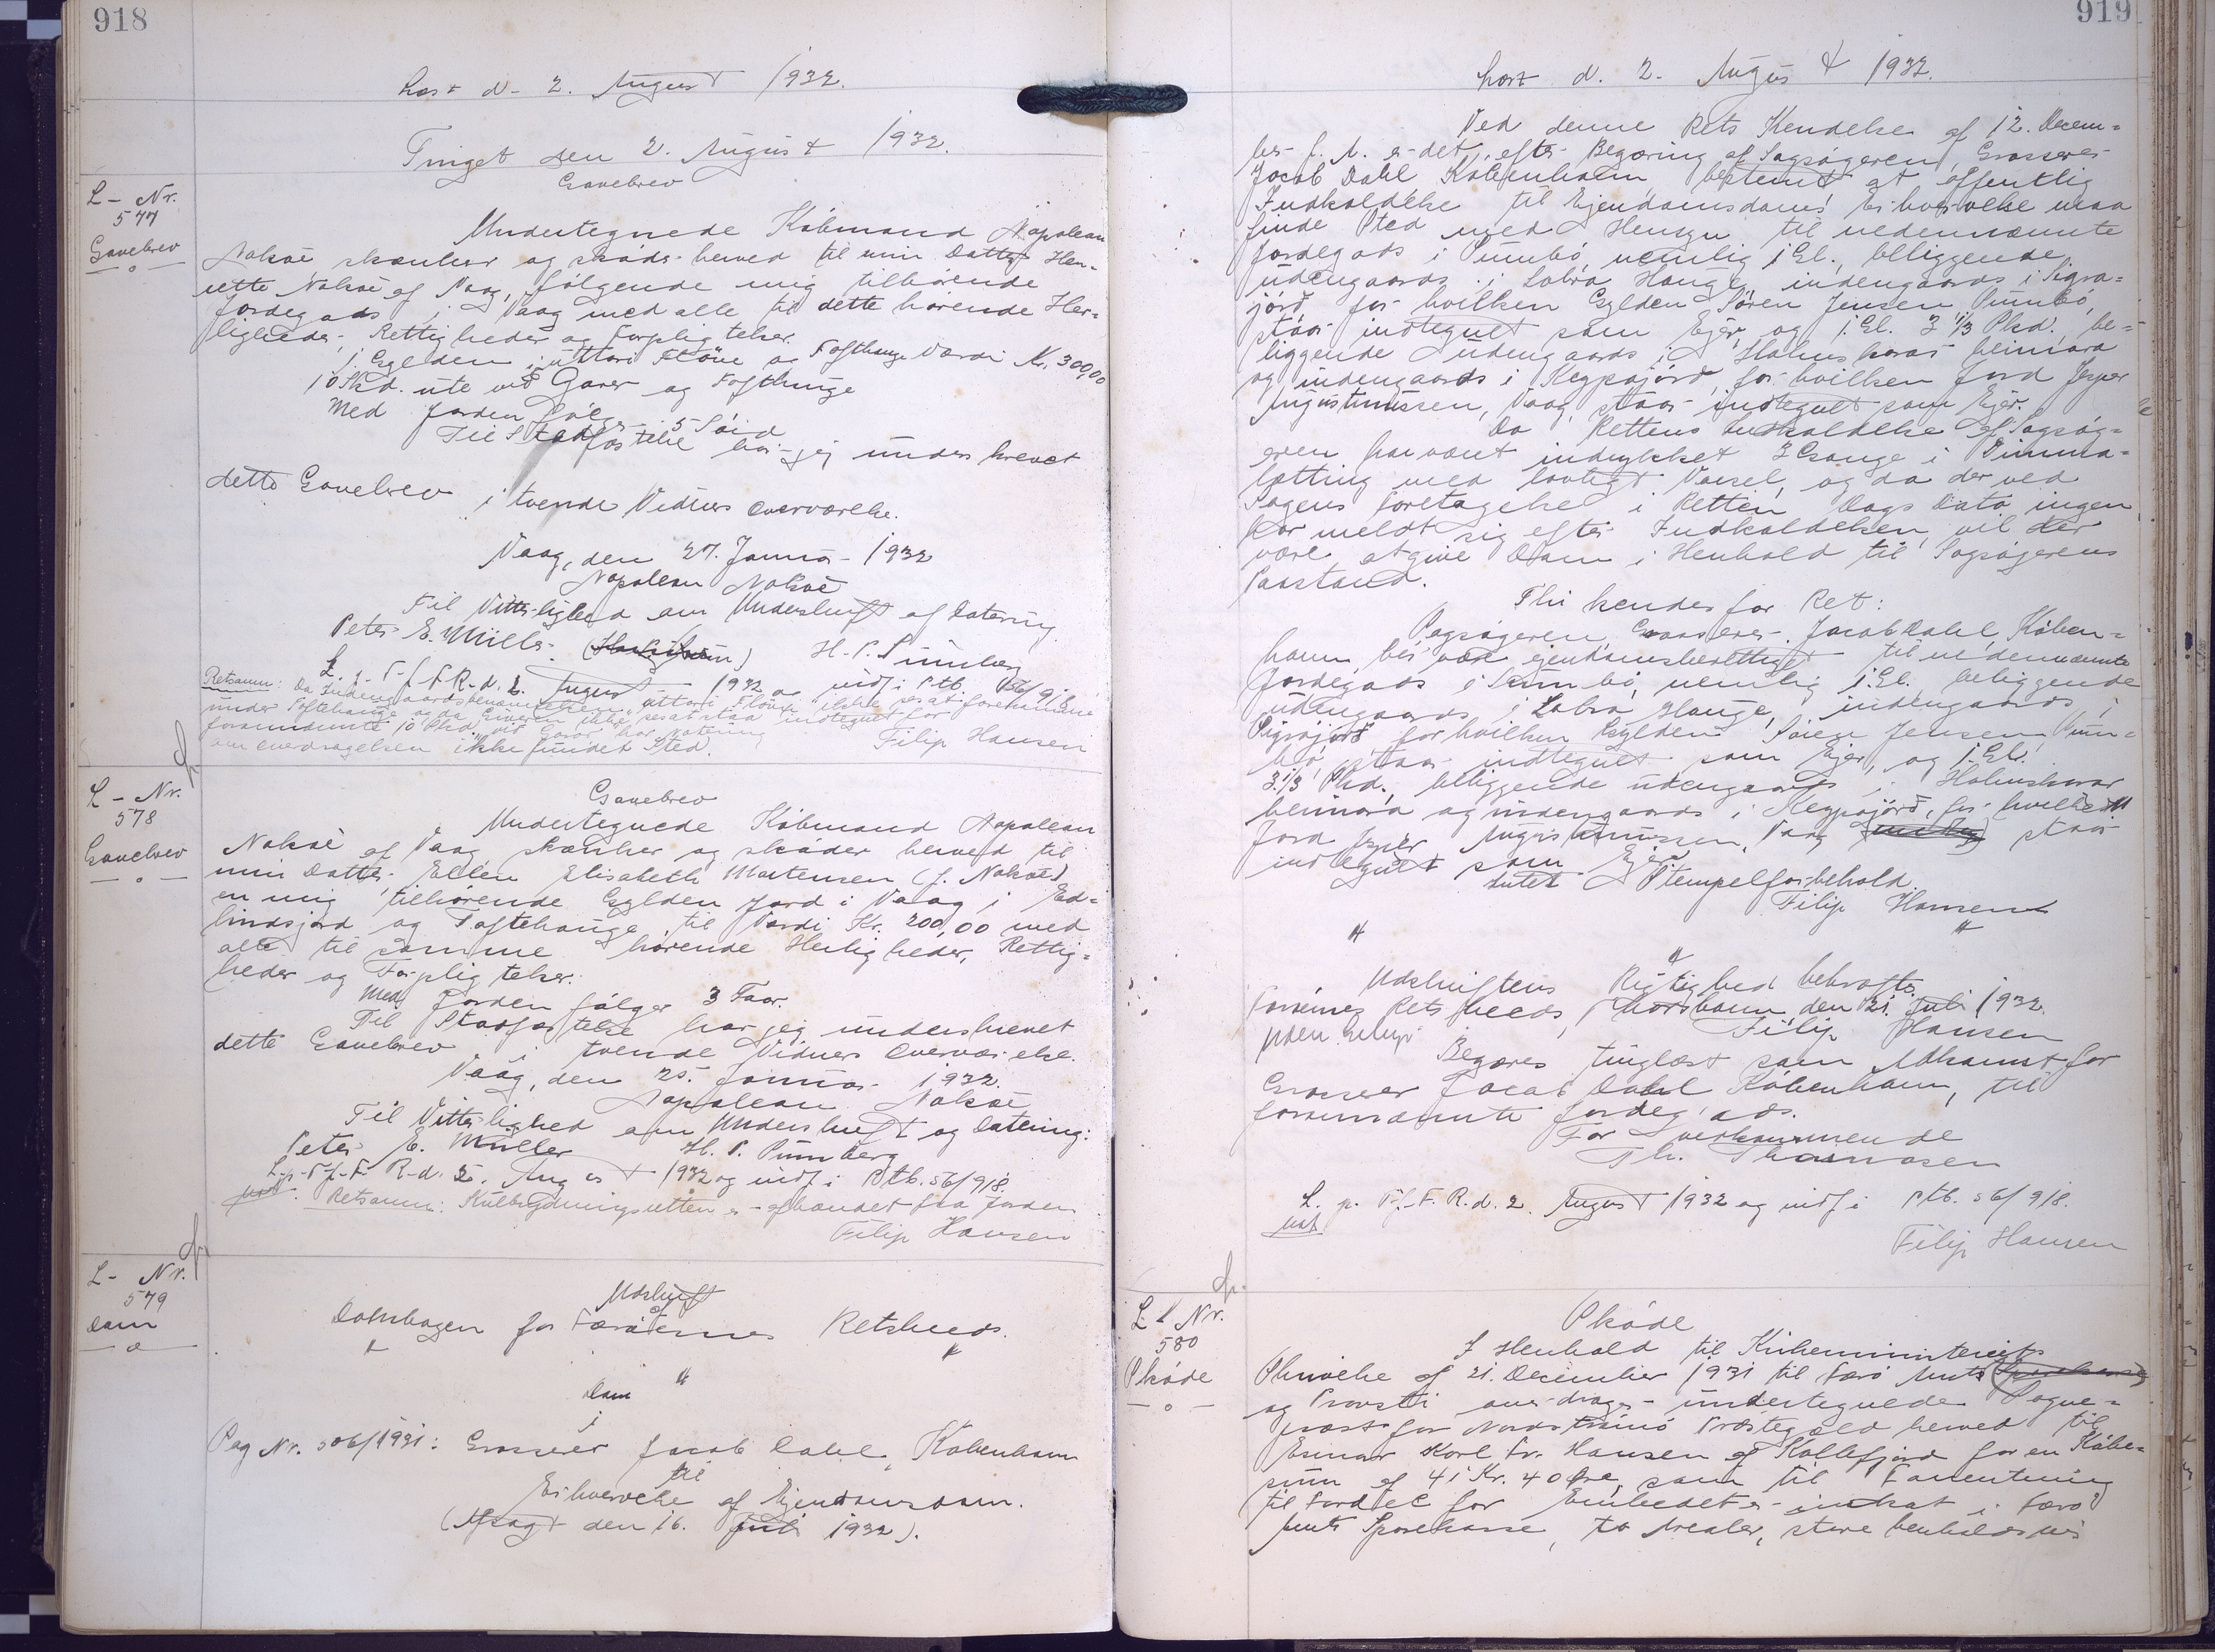 918
Læst d. 2. August 1932.
Tinget den 2. August 1932.
L- Nr.
577
Gavebrev
Gavebrev
Undertegnede Købmand Napolean
Nolsøe skænker og skøder herved til min Datter Hen-
iette Nolsøe af Vaag, følgende mig tilhørende
Jordegods i Vaag med alle til dette hørende Her-
ligheder, Rettigheder og Forpligtelser.
1 Gylden i uttari Fløue og Toftehauge Værdi Kr. 300,00
10 Skd. ute við Garar og Tofthauge
Med Jorden følger 5 Søid
Til Stadfæstelse har jeg underskrevet
dette Gavebrev i tvende Vidners Overværelse.
Vaag, den 27. Januar 1932
Napolean Nolsøe
Til Vitterlighed om Underskrift af Datering.
Peter E. Müller H. P. Sunnberg
L. p. T. f. F. R. d. 2. August 1932 og indf i Ptb. 56/918
Retsanm: Da Indengaardsbenævnelsen "uttari Fløue" ikke ses at forekomme
under Toftehauge og da Giveren ikke ses at staa indtegnet for
forannævnte 10 Skd. við Garar har Notering
om Overdragelsen ikke fundet Sted. Filip Hansen
L - Nr.
578
Gavebrev
Gavebrev
Undertegnede Købmand Napolean
Nolsøe af Vaag skænker og skøder herved til
min Datter Ellen Elisabeth Mortensen (f. Nolsøe)
en mig tilhørende Gylden Jord i Vaag i Ed-
lindsjord og Toftehauge til Værdi Kr. 200,00 med
alle til samme hørende Herligheder, Rettig-
heder og Forpligtelser.
Med Jorden følger 3 Faar.
Til Stadfæstelse har jeg underskrevet
dette Gavebrev i tvende Vidners Overværelse.
Vaag, den 25. Januar 1932.
Napolean Nolsøe
Til Vitterlighed om Underskrift og Datering:
Peter E. Müller H. P. Sunnberg
L. p. T. f. F. R. d. 2. August 1932 og indf i Ptb. 56/918.
Retsanm: Kulbrydningsretten er afhændet fra Jorden
Filip Hansen
L- Nr.
579
Dom
Udskrift
af
Dombogen for Færøernes Retskreds.
Dom
i
Sag Nr. 306/1931: Grosserer Jacob Dahl, København
til
Erhvervelse af Ejendomsdom.
(Afsagt den 16. Juli 1932).
919
Læst d. 2. August 1932.
Ved denne Rets Kendelse af 12. Decem-
ber f. A. er det efter Begæring af Sagsøgeren, Grosserer
Jacob Dahl København bestemt at offentlig
Indkaldelse til Ejendomsdoms Erhvervelse maa
finde Sted med Hensyn til nedennævnte
Jordegods i Sumbø, nemlig 1 Gl., beliggende
udengaards i Lobra Hauge, indengaards i Sigra-
jørð, for hvilken Gylden Søren Jensen Sumbø,
staar indtegnet som Ejer, og 1 Gl. 3 1/3 Skd., be-
liggende udengaards i Holmskorar heimara
og indengaards i Keypajørð, for hvilken Jord Jesper
Augustinussen, Vaag, staar indtegnet som Ejer.
Da Rettens Indkaldelse af Sagsøg-
eren har været indrykket 3 Gange i Dimma-
lætting med lovligt Varsel, og da der ved
Sagens Foretagelse i Retten Dags Dato ingen
har meldt sig efter Indkaldelsen, vil der
være at give Dom i Henhold til Sagsøgerens
Paastand.
Thi kendes for Ret:
Sagsøgeren, Grosserer Jacob Dahl, Køben-
havn, bør være ejendomsberettiget til nedennævnte
Jordegods i Sumbø, nemlig 1 Gl. beliggende
udengaards i Lobra Hauge, indengaards i
Sigrajørð for hvilken Gylden Søren Jensen, Sum-
bø, staar indtegnet som Ejer, og 1 Gl.
3 1/3 Skd., beliggende udengaards i Holmskorar
heimara og indengaards i Keypajørð, for hvilken
Jord Jesper Augustinussen, Vaag staar
indtegnet som Ejer.
Intet Stempelforbehold.
Filip Hansen
Udskriftens Rigtighed bekræftes.
Færøernes Retskreds, Thorshavn den 21. Juli 1932.
Filip Hansen
Uden Gebyr
Begæres tinglæst som Adkomst for
Grosserer Jacob Dahl København, til
forannævnte Jordegods.
For Vedkommende
Th. Thomasen
L. p. T. f. F. R. d. 2. August 1932 og indf i Ptb. 56/918.
Filip Hansen
L Nr.
580
Skøde
Skøde
I Henhold til Kirkeministeriets
Skrivelse af 21. December 1931 til Færø Amt
og Provsti overdrager undertegnede Sogne-
præst for Nordstrømø Præstegæld herved til
Esmar Karl Fr. Hansen af Kollefjord for en Købe-
sum af 41 Kr. 40 Øre, som til Forrentning
til Fordel for Embedet er indsat i Færø
Amts Sparekasse, to Arealer, store henholdsvis